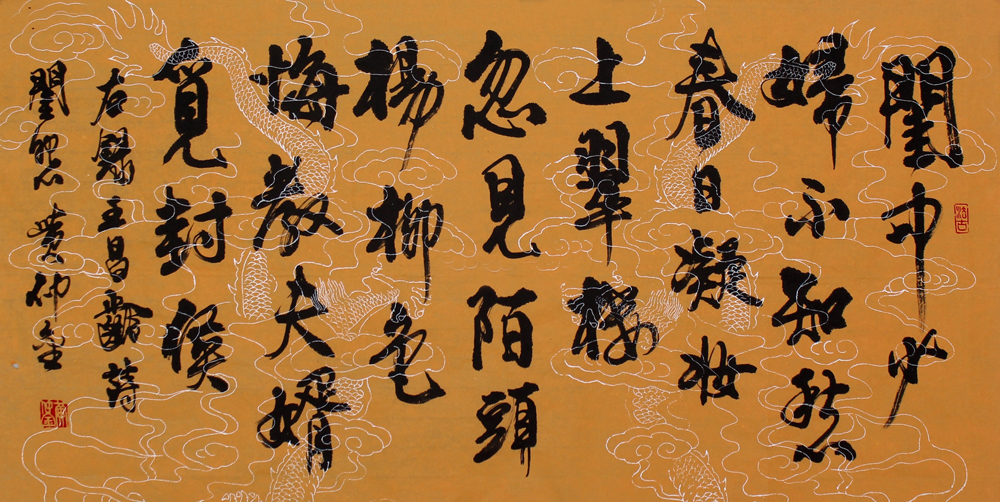 閨中少
婦不知愁
春日凝妝
上翠樓
忽見陌頭
楊柳色
悔教夫婿
覓封侯
右錄王昌齡詩
閨怨 黄仲金